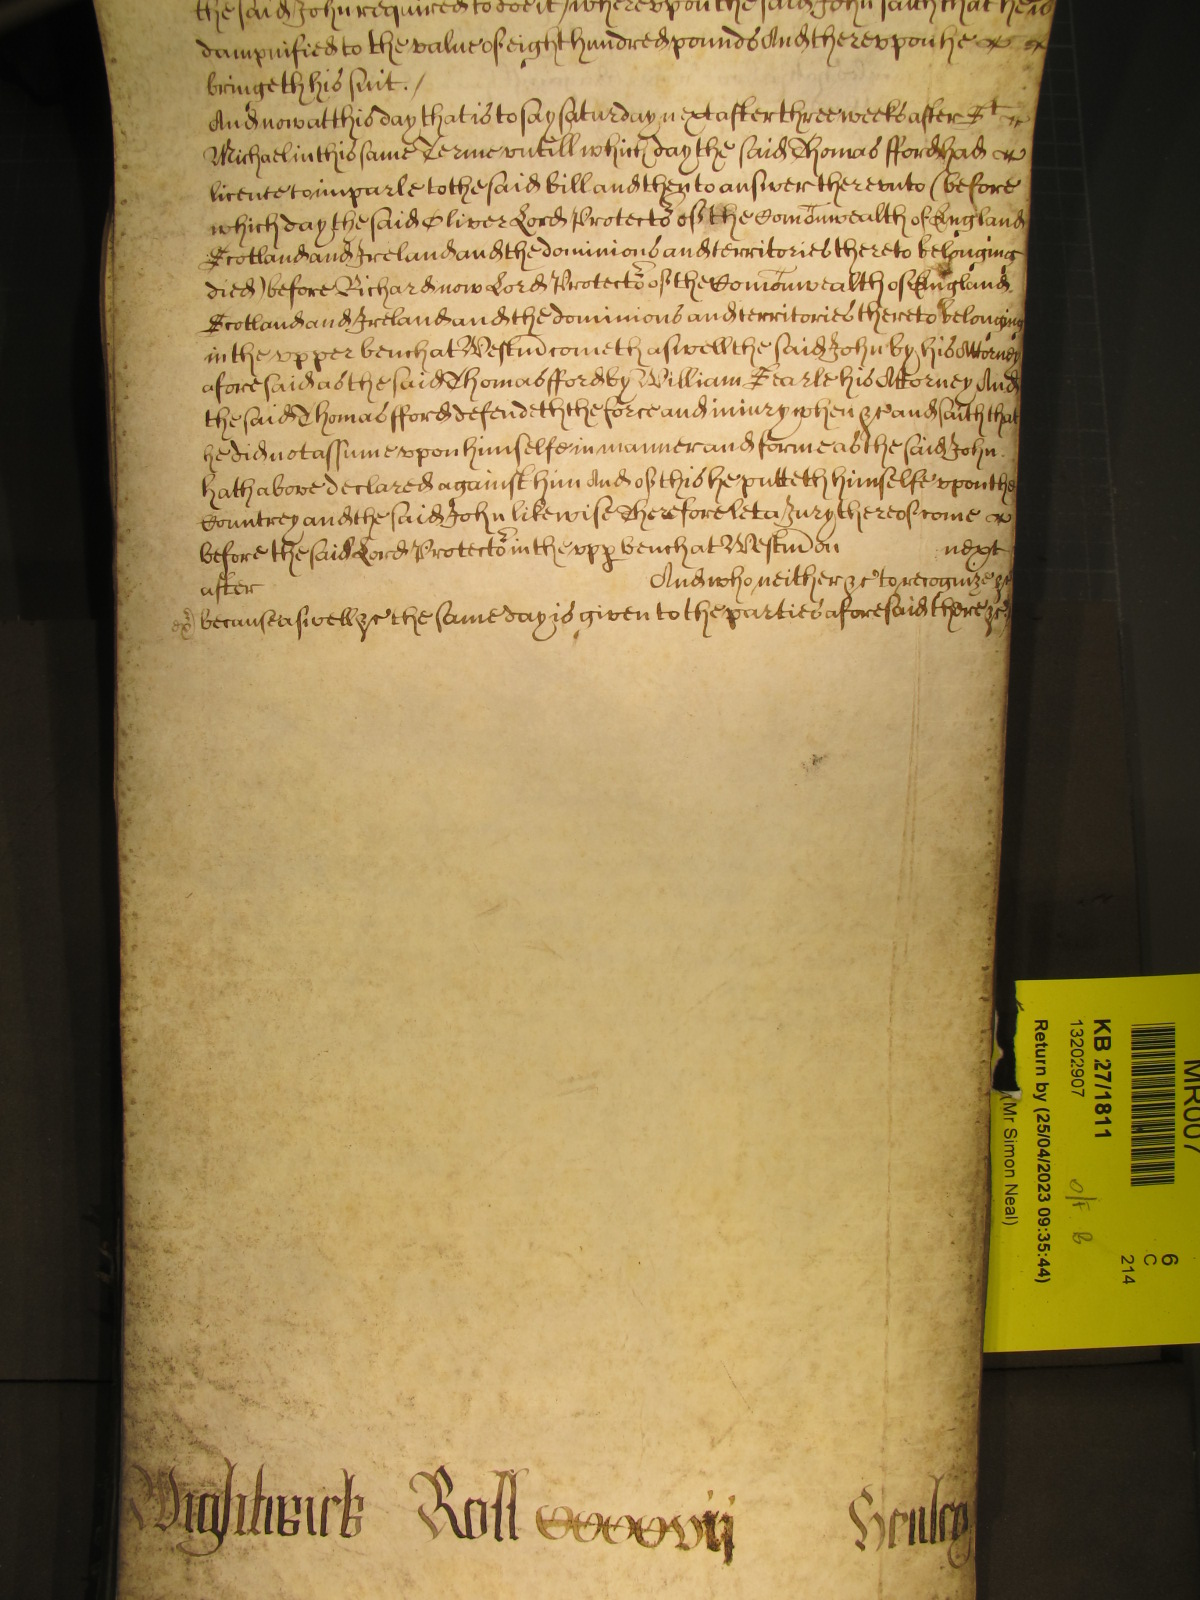 the said John required to doe it / wherevpon the said John saith that he is
dampnified to the value of eight hundred pounds And therevpon he
bringeth his suit. /
And now at this day that is to say saturday next after three weeks after St
Michael in this same Terme vntill which day the said Thomas fford had
licence to imparle to the said bill and then to answer therevnto (before
which day the said Oliver Lord Protector of the Comonwealth of England
Scotland and Ireland and the dominions and territories thereto belonging
died) before Richard now Lord Protector of the Comonwealth of England
Scotland and Ireland and the dominions and territories thereto belonging
in the vpper bench at Westm cometh aswell the said John by his Attorney
aforesaid as the said Thomas fford by William Searle his Attorney And
the said Thomas fford defendeth the force and iniury when &c and saith that
he did not assume vpon himselfe in manner and forme as the said John
hath above declared against him And of this he putteth himselfe vpon the
Countrey and the said John likewise Therefore let a Jury thereof come
before the said Lord Protector in the vpp bench at Westm on next
after And who neither &c to recognize &c
because aswell &c the same day is given to the parties aforesaid there &c
Wightwick Roll xxxxvij Henley
MR007
6
C
214
KB 27/1811
13202907
O/F B
Return by (25/04/2023 09:35:44)
(Mr Simon Neal)